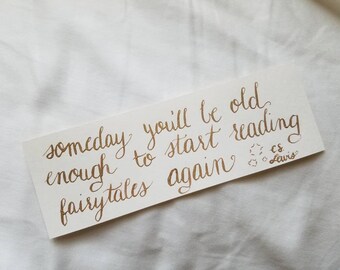 someday you'll be old
enough to start reading
fairytales again
c.s.
Lewis